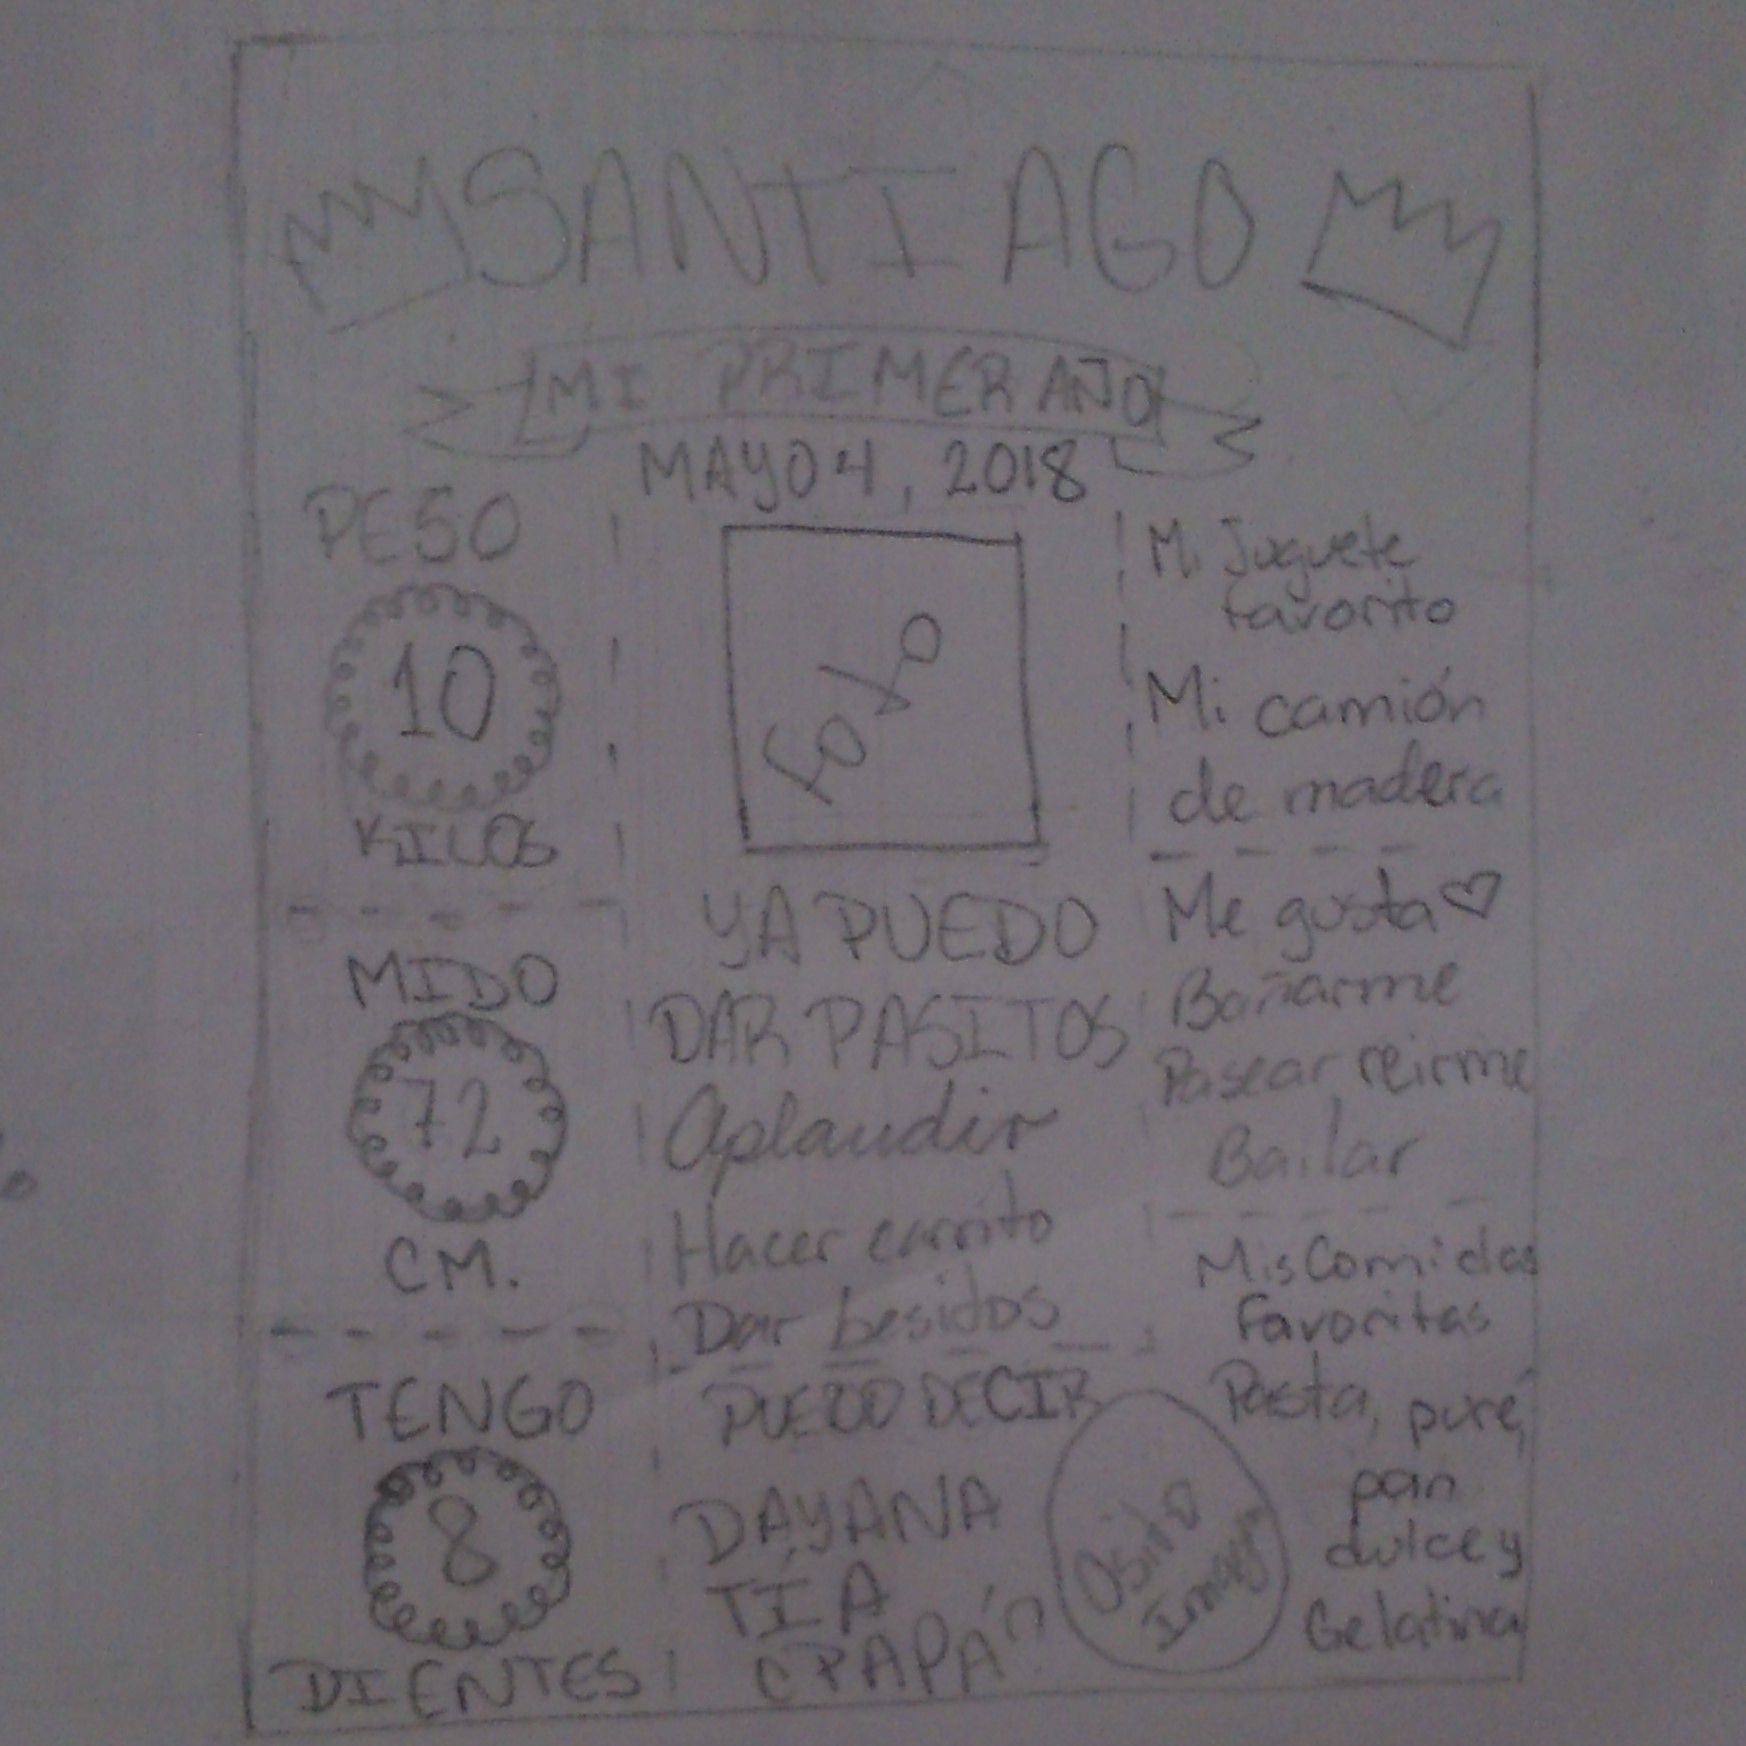 SANTIAGO
MI PRIMER AÑO
MAYO 4, 2018
PESO
10
KILOS
MIDO
72
CM.
TENGO
8
DIENTES
foto
YA PUEDO
DAR PASITOS
Aplaudir
Hacer carrito
Dar besitos
PUEDO DECIR
DAYANA
TÍA
PAPÁ
Mi Juguete
favorito
Mi camión
de madera
Me gusta
Bañarme
Pasear reirme
Bailar
Mis Comidas
Favoritas
Pasta, puré,
pan
dulce y
Gelatina
Osito
Imagen